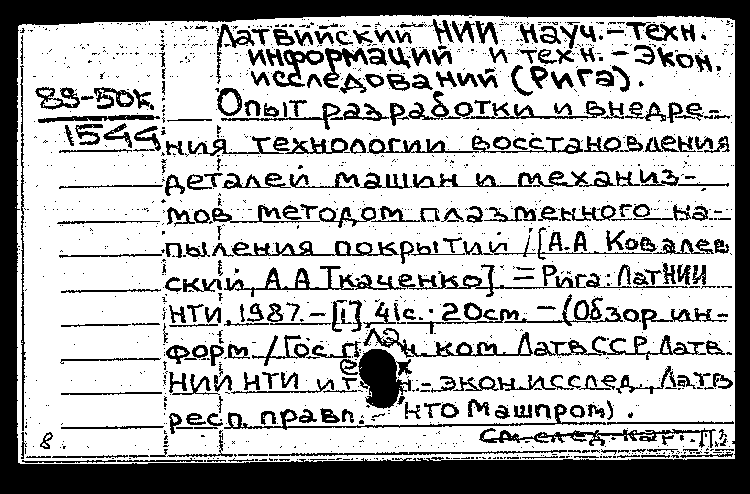 Латвийский НИИ науч.-техн.
информаций и техн.-экон.
исследований (Рига).
89-50к
1544
Опыт разработки и внедре-
ния технологии восстановления
деталей машин и механиз-
мов методом плазменного на-
пыления покрытий / [А.А. Ковалев
ский, А.А. Ткаченко]. = Рига: ЛатНИИ
НТИ, 1987. - [1], 41с.; 20см. - (Обзор ин-
форм / Гос. план. ком. ЛатвССР, Латв.
НИИ НТИ и техн.-экон. исслед., Латв
респ. правл. НТО Машпром).
См. след. карт.
8.